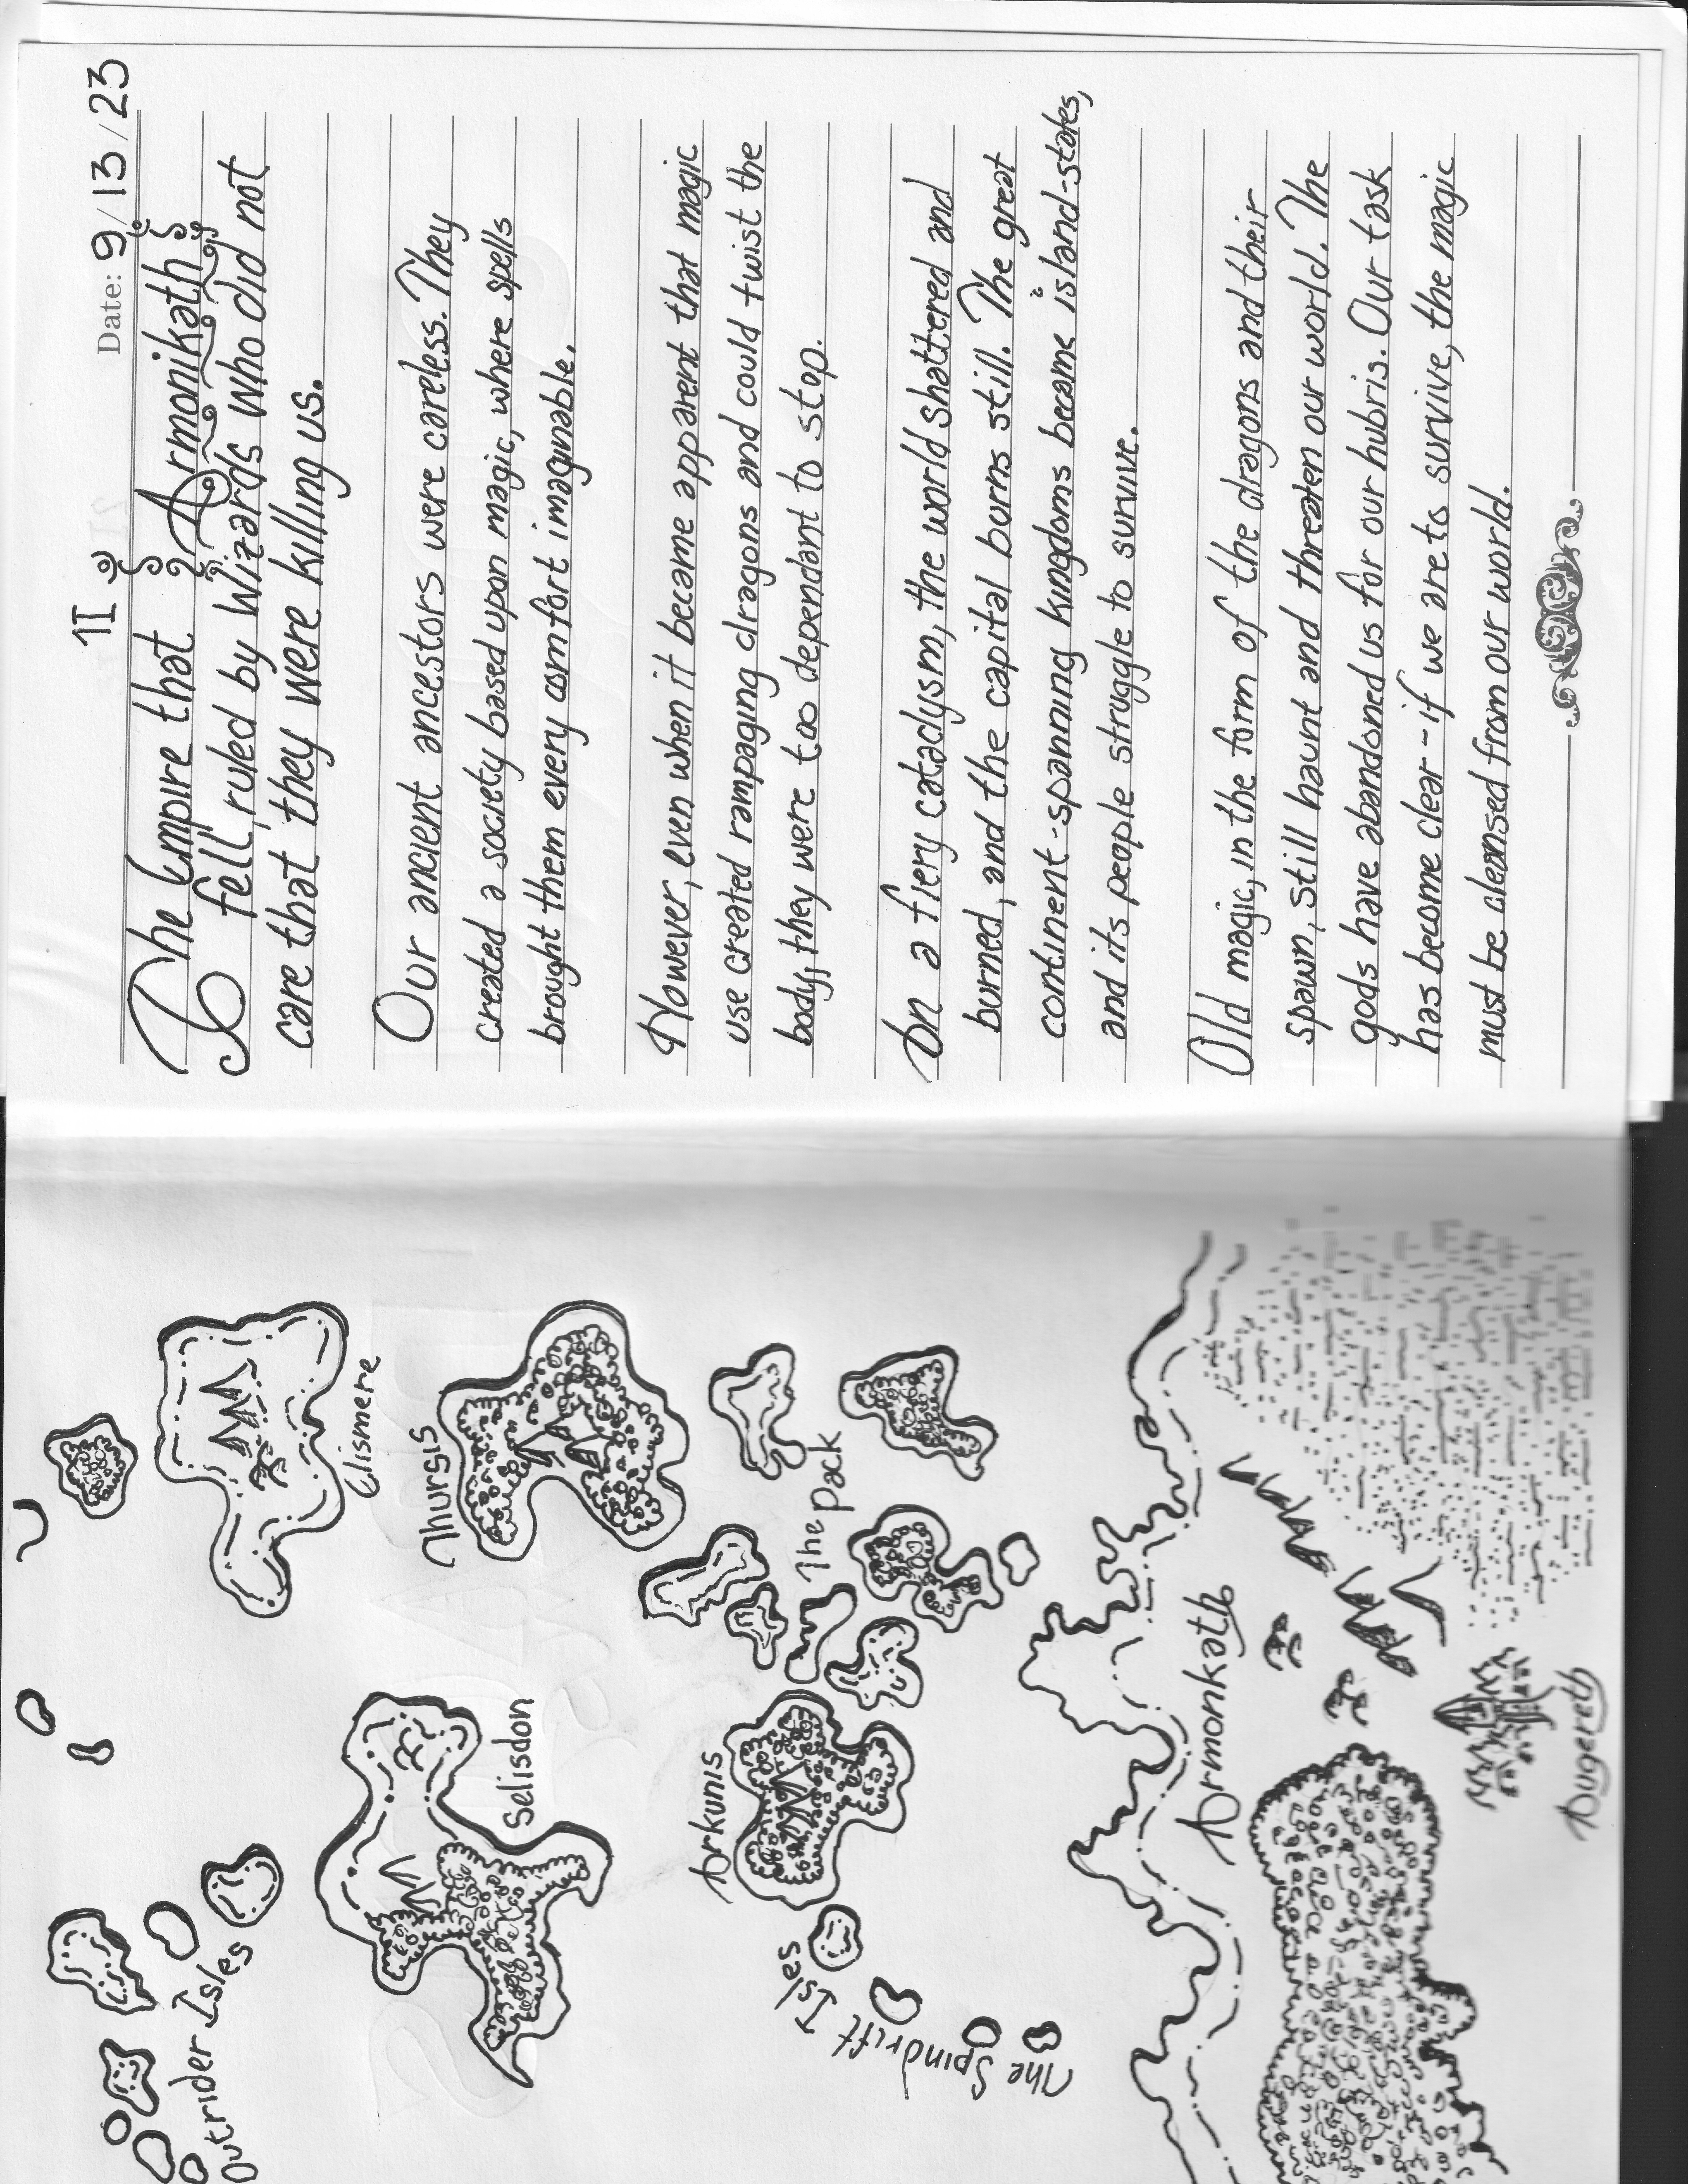 Outrider Isles
Selisdon
Elismere
Thursis
Arkunis
The Pack
The Spindrift Isles
Armonkath
Augereth
II
Date: 9/13/23
The Empire that Armonikath
fell, ruled by Wizards who did not
care that they were killing us.
Our ancient ancestors were careless. They
created a society based upon magic, where spells
brought them every comfort imaginable.
However, even when it became apparent that magic
use created rampaging dragons and could twist the
body, they were too dependant to stop.
In a fiery cataclysm, the world shattered and
burned, and the capital burns still. The great
continent-spanning kingdoms became island-states,
and its people struggle to survive.
Old magic, in the form of the dragons and their
spawn, still haunt and threaten our world. The
gods have abandoned us for our hubris. Our task
has become clear - if we are to survive, the magic
must be cleansed from our world.